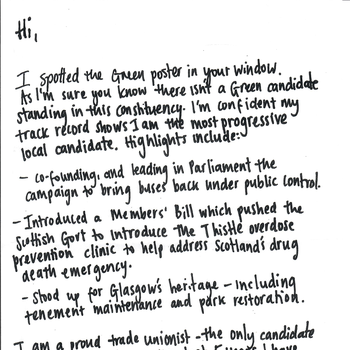 Hi,
I spotted the Green poster in your window.
As I'm sure you know there isn't a Green candidate
standing in this constituency. I'm confident my
track record shows I am the most progressive
local candidate. Highlights include:
- co-founding, and leading in Parliament the
campaign to bring buses back under public control.
- Introduced a Members' Bill which pushed the
Scottish Govt to introduce the Thistle overdose
prevention clinic to help address Scotland's drug
death emergency.
- Stood up for Glasgow's heritage - including
tenement maintenance and park restoration.
I am a proud trade unionist - the only candidate
I have